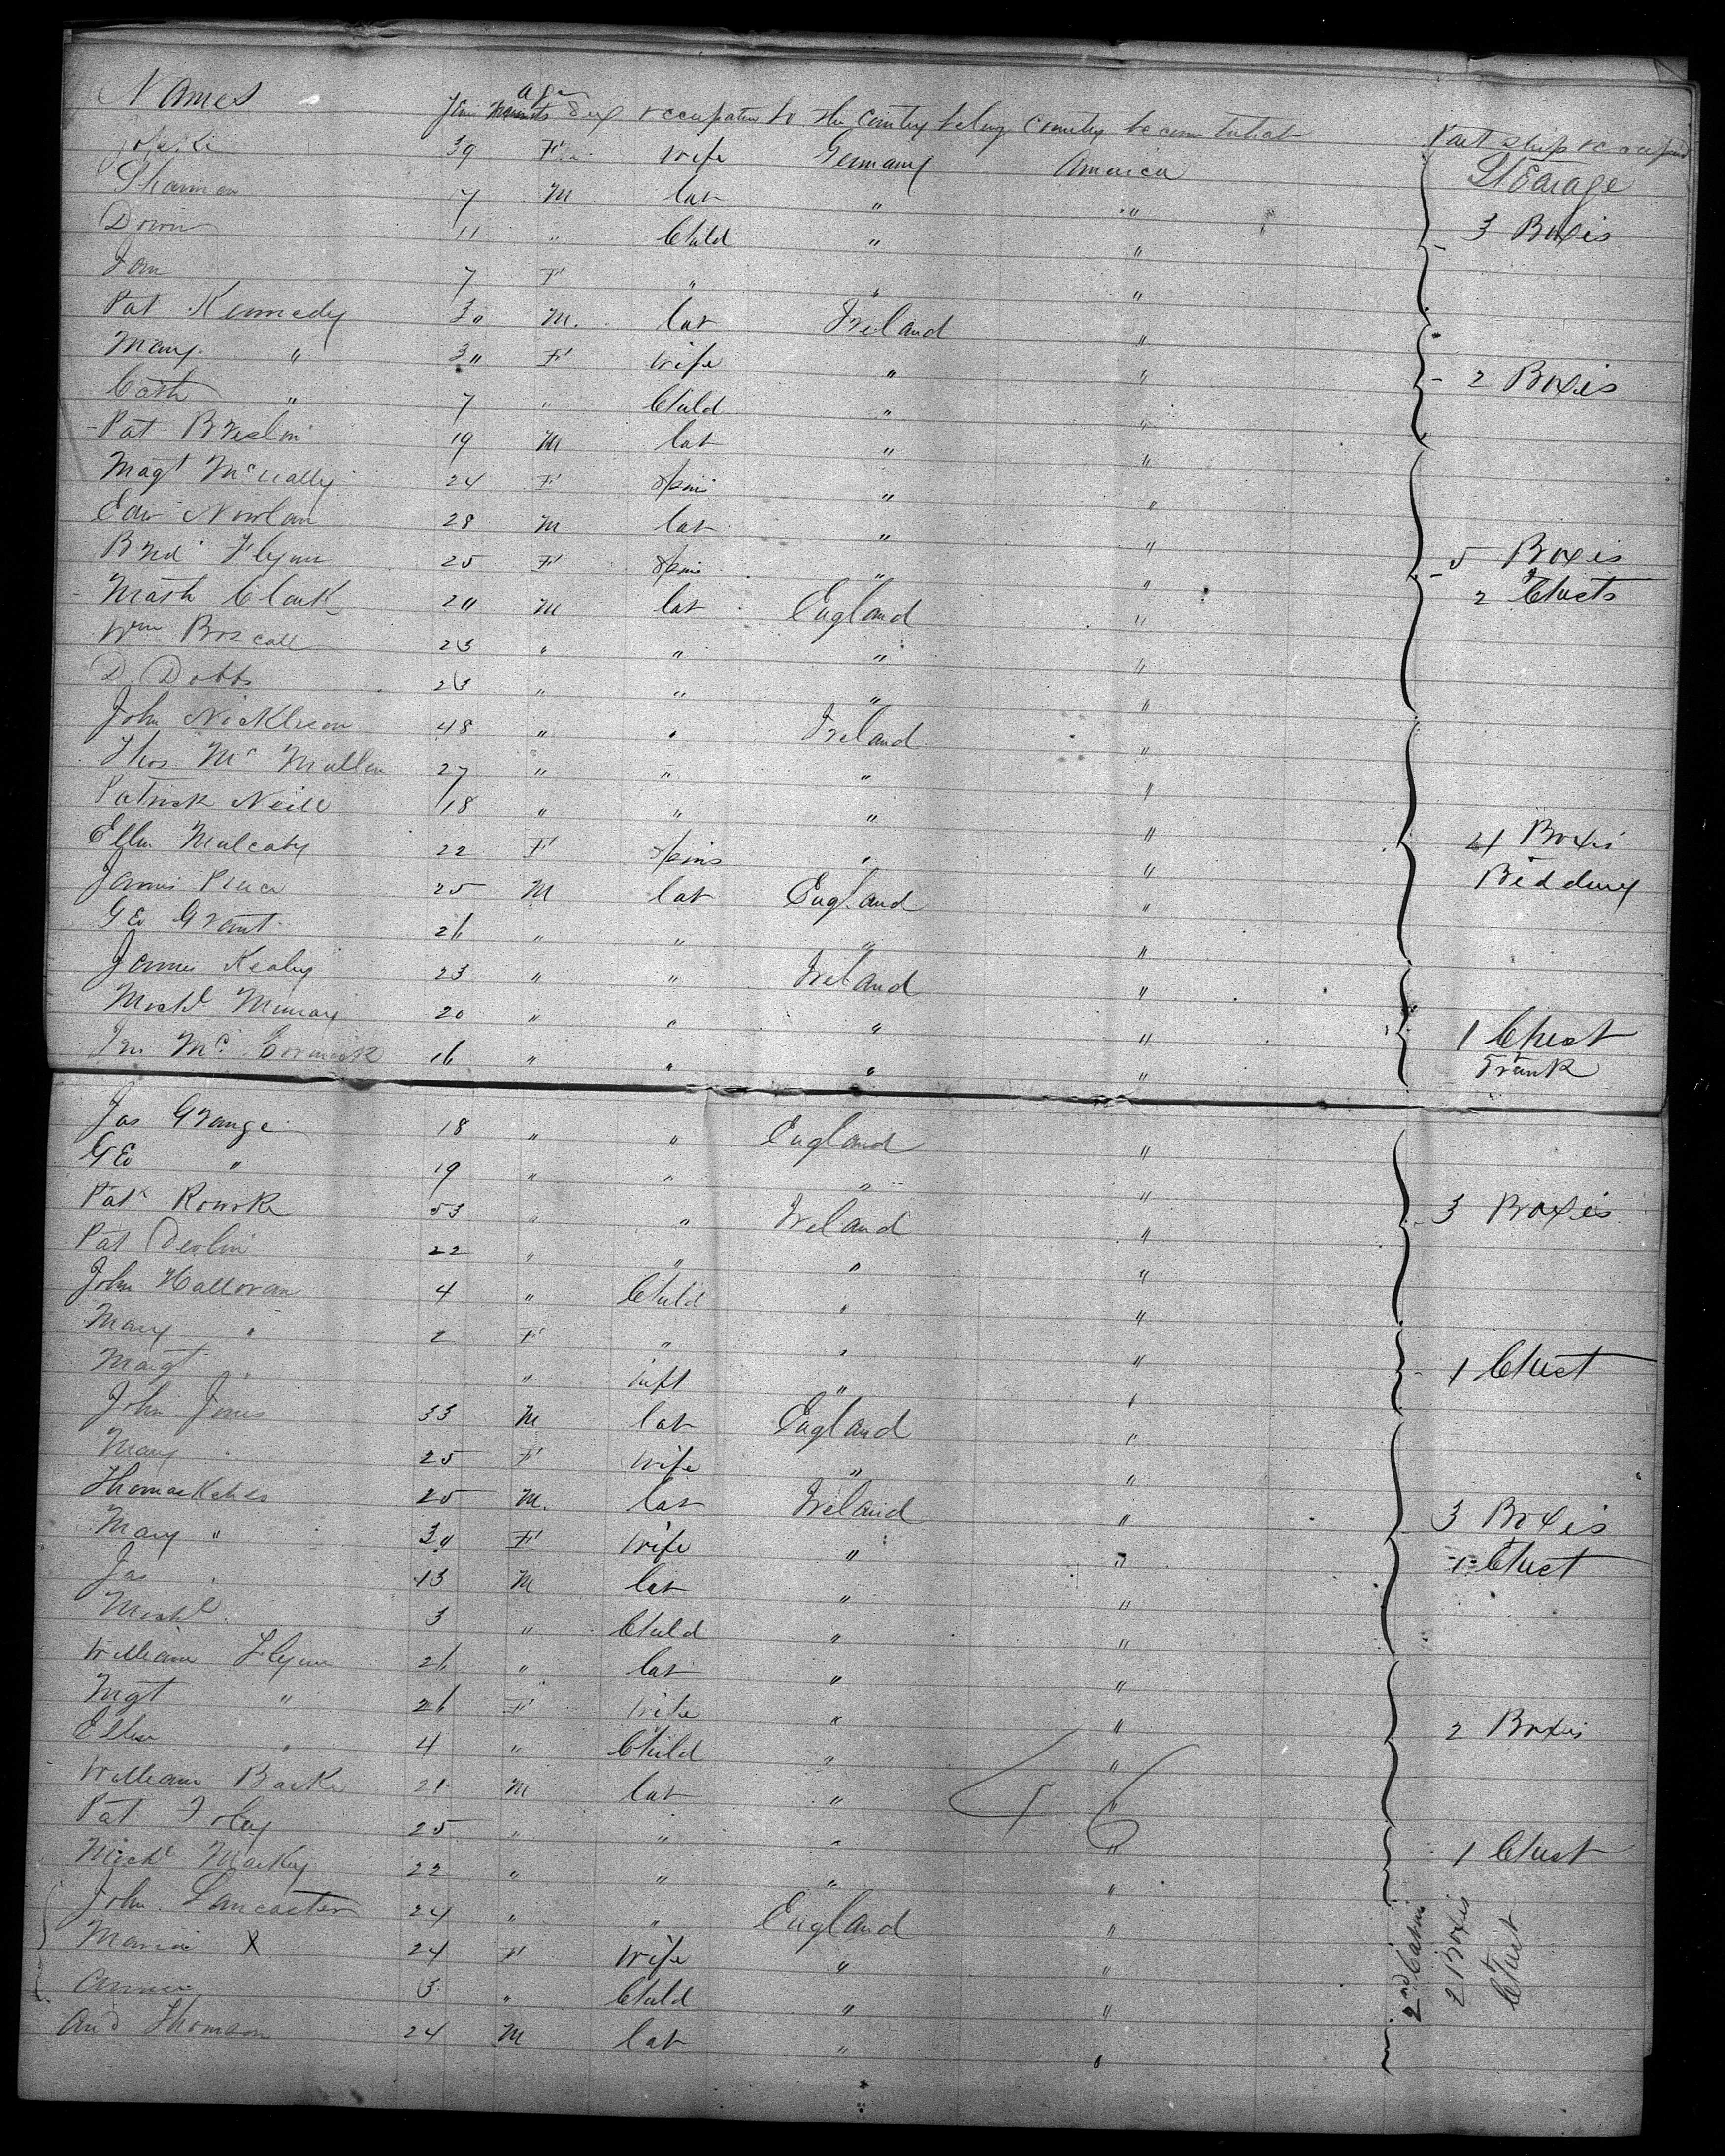 Names age sex occupation to the Country belong Country become Part ship
39 F wife Germany America Steerage
7 M lab " "
11 " Child " " 3 Boxes
7 F " " "
Pat Kennedy 30 M. lab Ireland "
Mary " 30 F wife " " 2 Boxes
Cath " 7 " Child " "
Pat Breslin 19 M lab " "
Magt McNally 24 F Spins " "
Edw Nowlan 28 M lab " "
Brid Flynn 25 F Spins " " 5 Boxes
Math Clark 20 M lab England " 2 Chests
Wm Boscall 23 " " " "
D. Dobbs 23 " " " "
John Nickleson 48 " " Ireland "
Thos Mc Mullen 27 " " " "
Patrick Neill 18 " " " "
Ellen Mulcahy 22 F Spins " " 4 Boxes
James 25 M lab England " Bedding
Geo Grant 26 " " " "
James Kealy 23 " " Ireland "
Michl Murray 20 " " " " 1 Chest
Mc Cormack 16 " " " " Trunk
Jas Grange 18 " " England "
Geo " 19 " " " "
Patk Rourke 53 " " Ireland " 3 Boxes
Pat Devlin 22 " " " "
John Halloran 4 " Child " "
Mary " 2 F " " "
Margt " " inft " " 1 Chest
John Jones 33 M lab England "
Mary " 25 F wife " "
Thomas 25 M. lab Ireland "
Mary " 30 F wife " " 3 Boxes
Jas " 13 M lab " " 1 Chest
Michl " 3 " Child " "
William Flynn 26 " lab " "
Mgt " 26 F wife " "
Ellen " 4 " Child " " 2 Boxes
William Barke 21 M lab " "
46
Pat Foley 25 " " " "
Michl Markey 22 " " " " 1 Chest
John Lancaster 24 " " England "
Maria X 24 F wife " "
Annie 3 " Child " "
And Thomson 24 M lab " "
2nd Cabin
2 Boxes
Chest